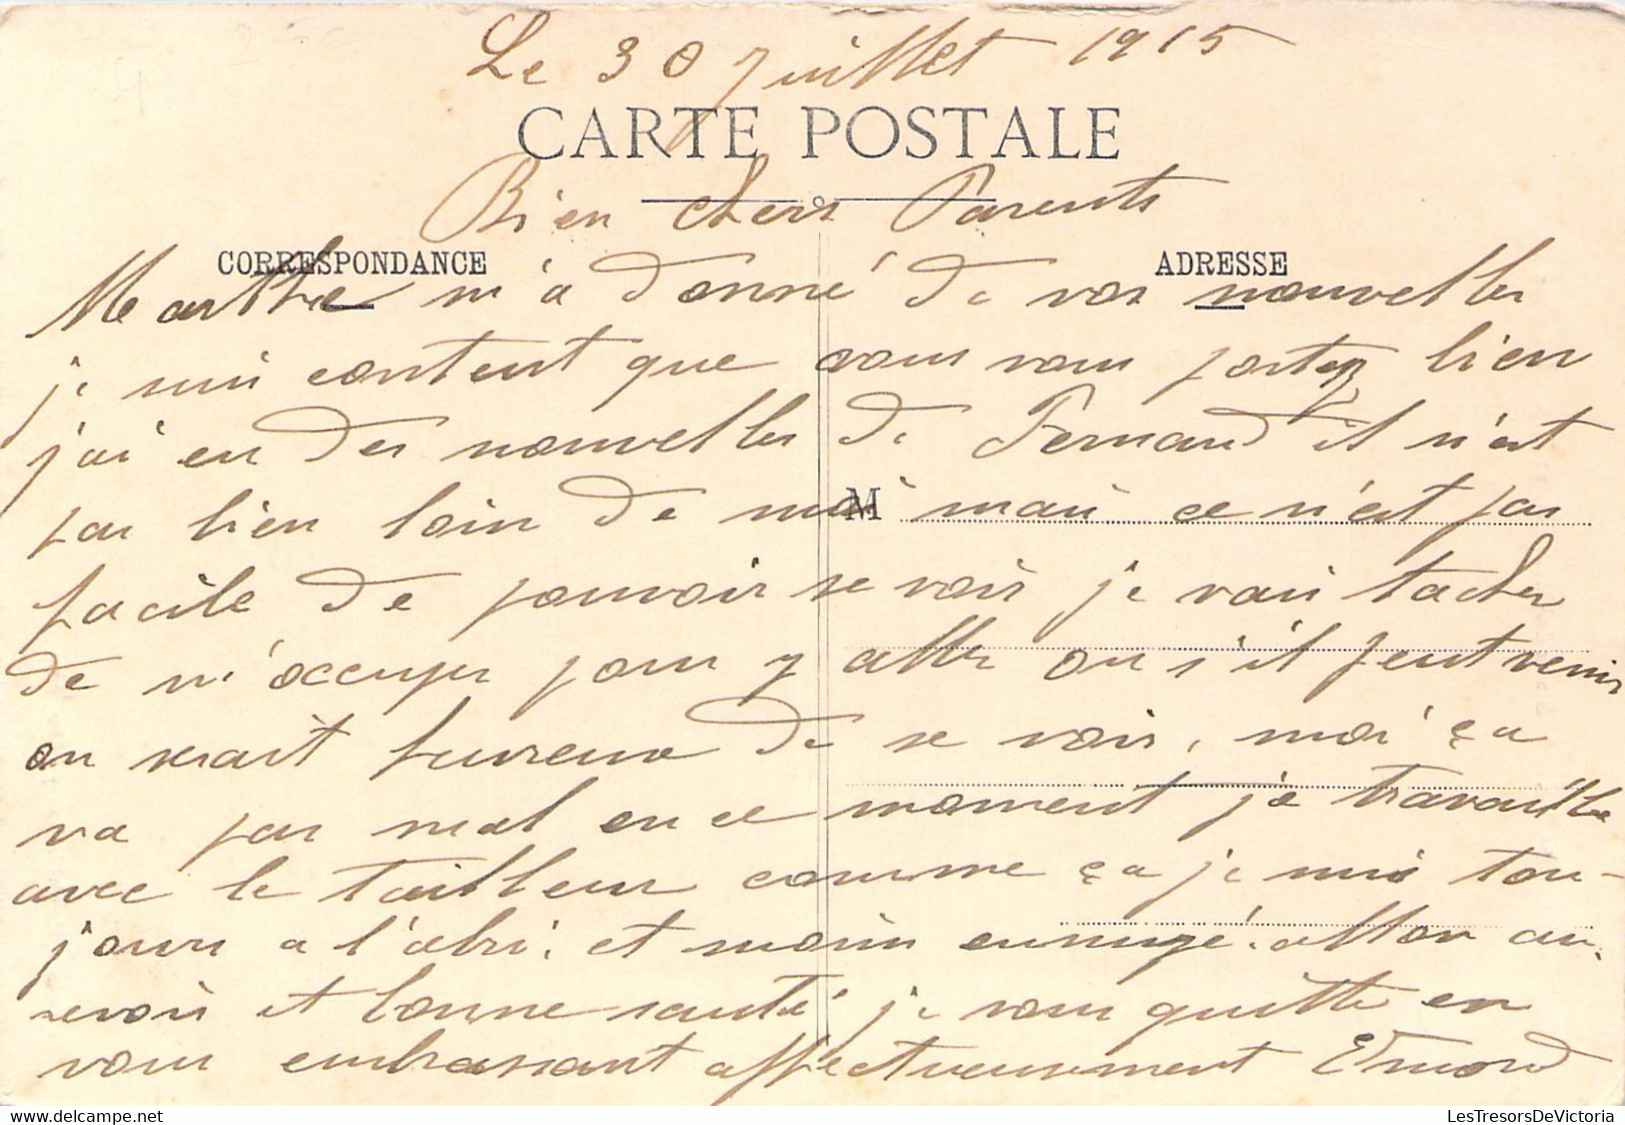 Le 30 juillet 1915
CARTE POSTALE
Bien chers Parents
CORRESPONDANCE ADRESSE
Marthe m'a donné de vos nouvelles
je suis content que vous vous portez bien
j'ai eu des nouvelles de Fernand il n'est
pas bien loin de moi mais ce n'est pas
M
facile de pouvoir se voir je vais tacher
de m'occuper pour y aller ou s'il peut venir
on serait heureux de se voir, moi ça
va pas mal en ce moment je travaille
avec le tailleur comme ça je suis tou-
jours a l'abri, et moins ennuyé. allon au
revoir et bonne santé je vous quitte en
vous embrassant affectueusement Edmond
delcampe.net
LesTresorsDeVictoria